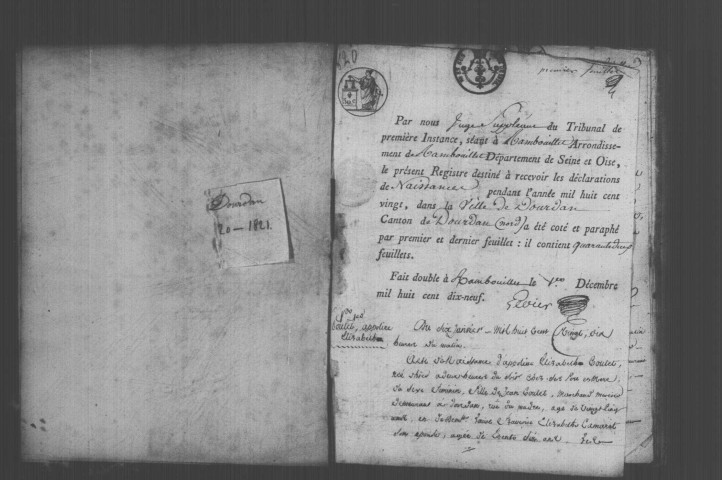 Dourdan
20 — 1821.
120
premier feuillet
Par nous Juge Suppléant du Tribunal de
première Instance, séant à Rambouillet Arrondisse-
ment de Rambouillet Département de Seine et Oise,
le présent Registre destiné à recevoir les déclarations
de Naissances pendant l'année mil huit cent
vingt, dans la Ville de Dourdan
Canton de Dourdan (nord) a été coté et paraphé
par premier et dernier feuillet : il contient quarante deux
feuillets.
Fait double à Rambouillet le Décembre
mil huit cent dix-neuf.
Boulet, apolline
Elizabeth
Du six janvier mil huit cent vingt, dix
heures du matin.
Acte de Naissance d'apolline Elizabeth Boulet,
née hier à deux heures du soir chez son père et mère,
du sexe féminin, fille de Jean Boulet, marchand
demeurant à Dourdan, rue agé de vingt cinq
ans, et de Elizabeth
son épouse, agée de trente six ans.